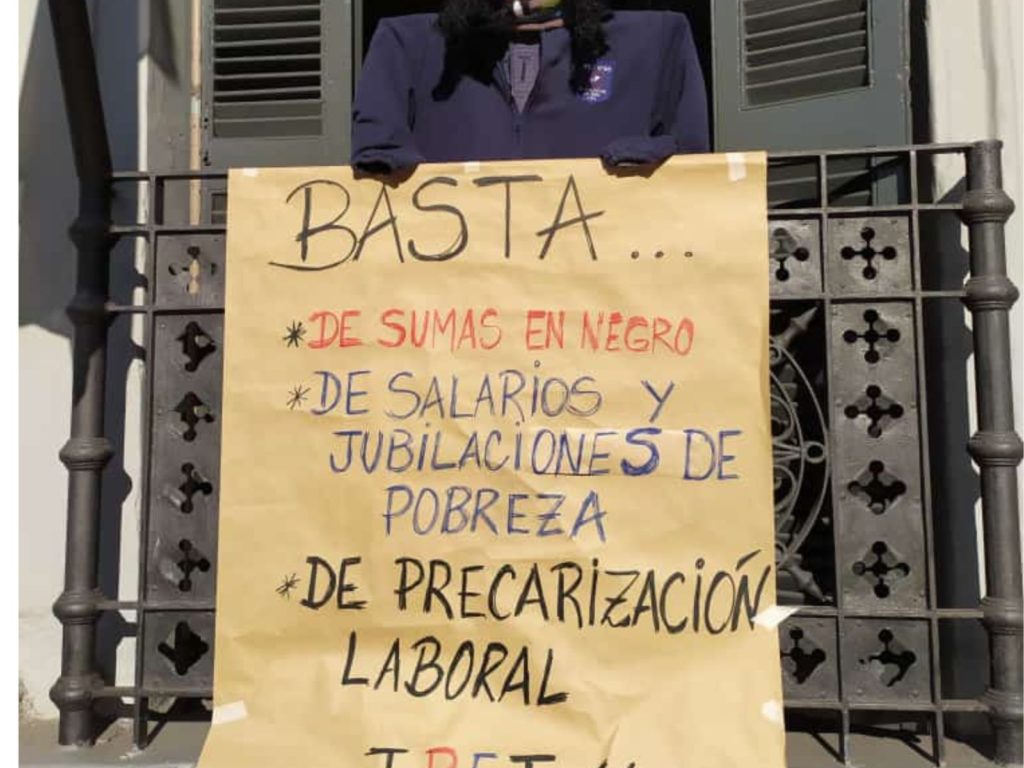 BASTA...
*DE SUMAS EN NEGRO
*DE SALARIOS Y
JUBILACIONES DE
POBREZA
*DE PRECARIZACIÓN
LABORAL